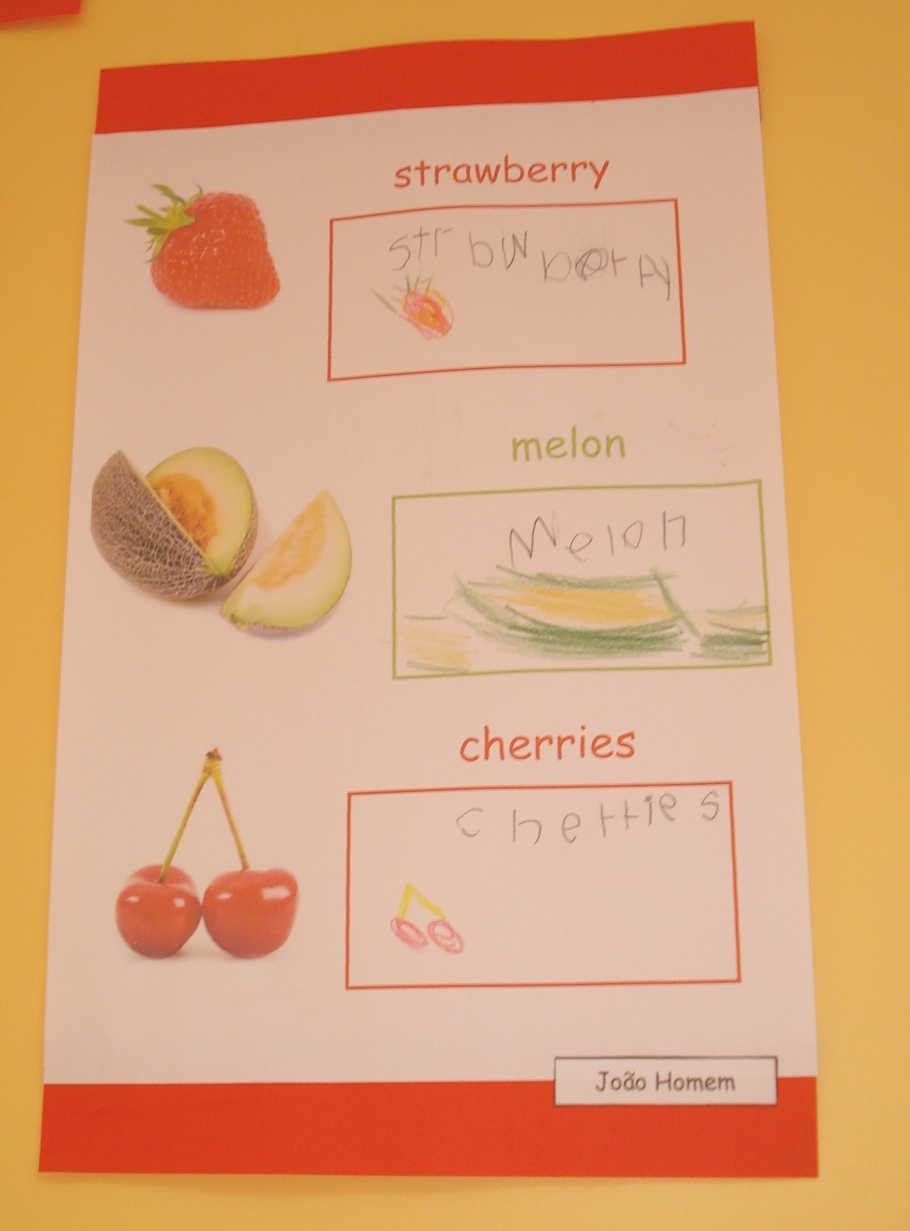 strawberry
strbwberry
melon
Melon
cherries
cherries
João Homem